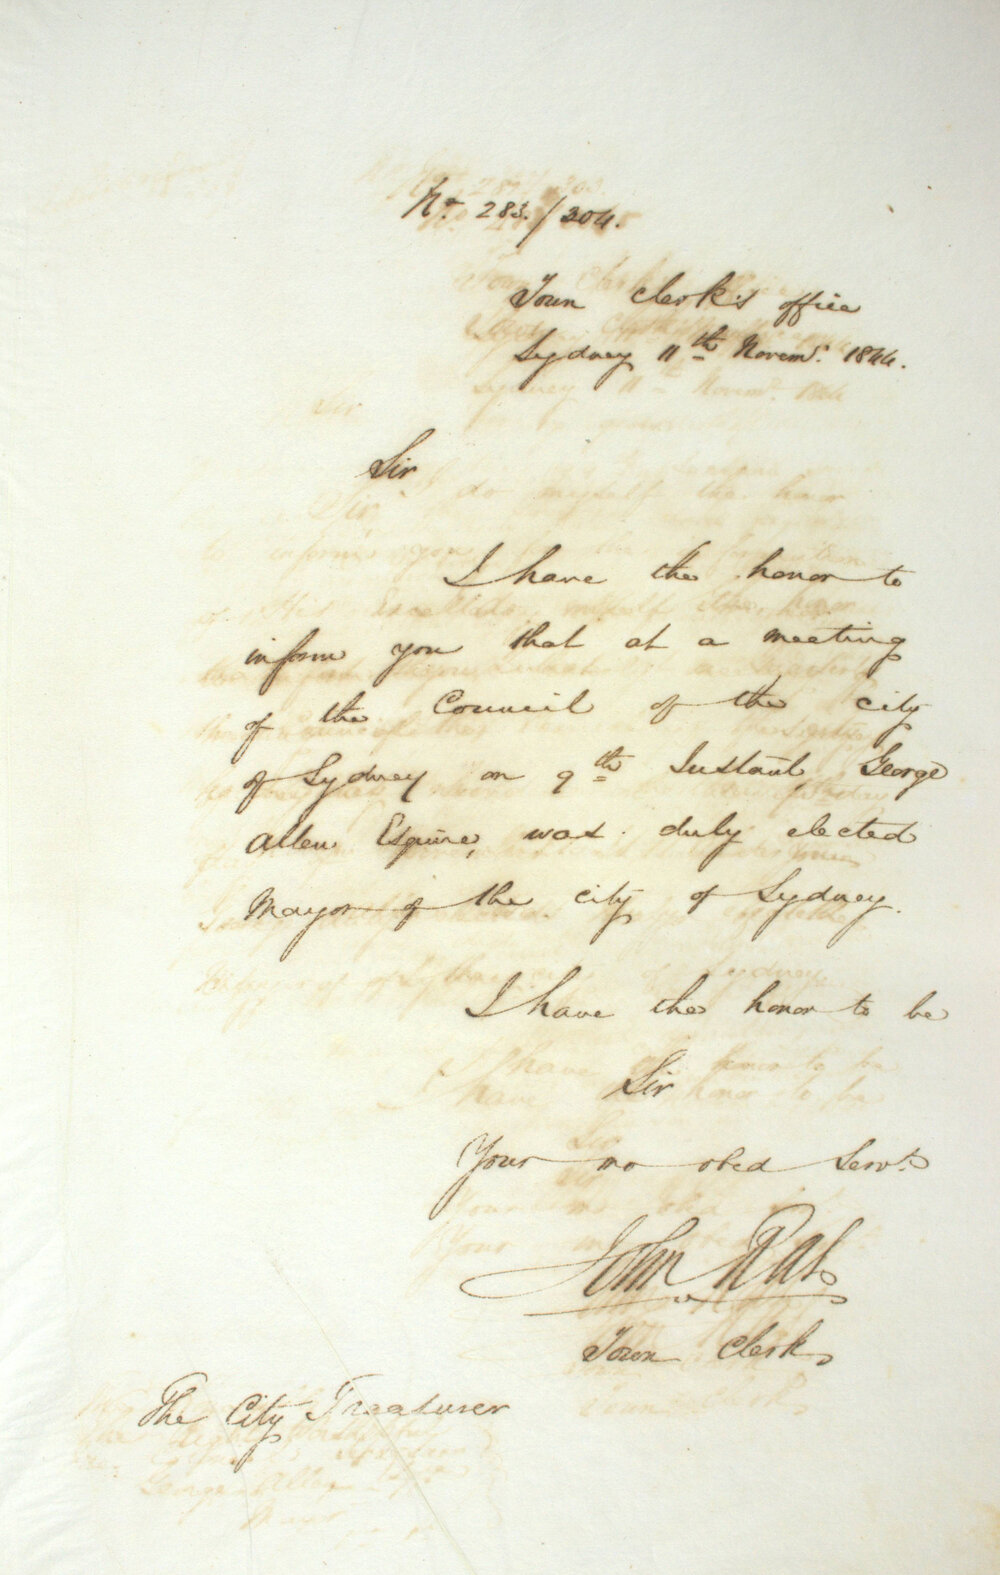 No. 283./304.
Town Clerk's office
Sydney 11th Novemr. 1844.
Sir
I have the honor to
inform you that at a meeting
of the Council of the city
of Sydney on 9th Instant George
Allen Esquire, was duly elected
Mayor of the city of Sydney.
I have the honor to be
Sir
Your mo obed Servt.
John Rae
Town Clerk
The City Treasurer